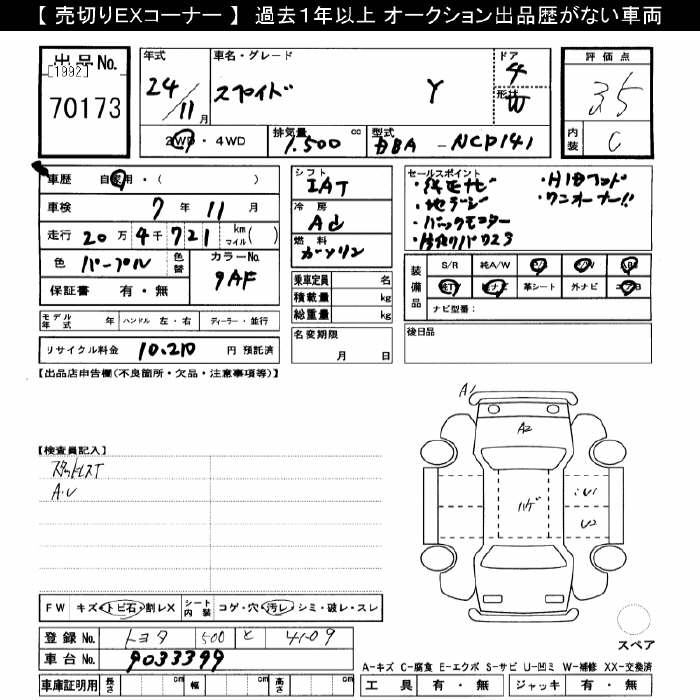 【 売切りEXコーナー 】 過去1年以上 オークション出品歴がない車両
出品No.
[1992]
70173
年式
24/11月
車名・グレード
スペイド Y
ドア
4
形状
W
評価点
3.5
内装
C
2WD・4WD
排気量
1.500 cc
型式
DBA -NCP141
車歴 自家用・( )
車検 7年 11月
走行 20万4千721 kmマイル( )
色 パープル 色替
カラーNo. 9AF
保証書 有・無
シフト
IAT
冷房
燃料
ガソリン
乗車定員 名
積載量 kg
総重量 kg
セールスポイント
・純正ナビ ・HIDヘッド
・地デジ ・ワンオーナー!!
・バックモニター
装備品
S/R 純A/W P/S P/W ABS
純TV 純ナビ 革シート 外ナビ エアB
ナビ型番:
モデル年式 年 ハンドル 左・右 ディーラー・並行
リサイクル料金 10.210 円 預託済
名変期限
月 日
後日品
【出品店申告欄(不良箇所・欠品・注意事項等)】
【検査員記入】
スタットレスT
A・U
A1
A2
ハゲ
U1
U2
FW キズ・トビ石・割レX シート内装 コゲ・穴・汚レ・シミ・破レ・スレ
登録No. トヨタ 500 と 4109
車台No. 9033399
車庫証明用 長さ cm 幅 cm 高さ cm
スペア
A-キズ C-腐食 E-エクボ S-サビ U-凹ミ W-補修 XX-交換済
工具 有・無 ジャッキ 有・無